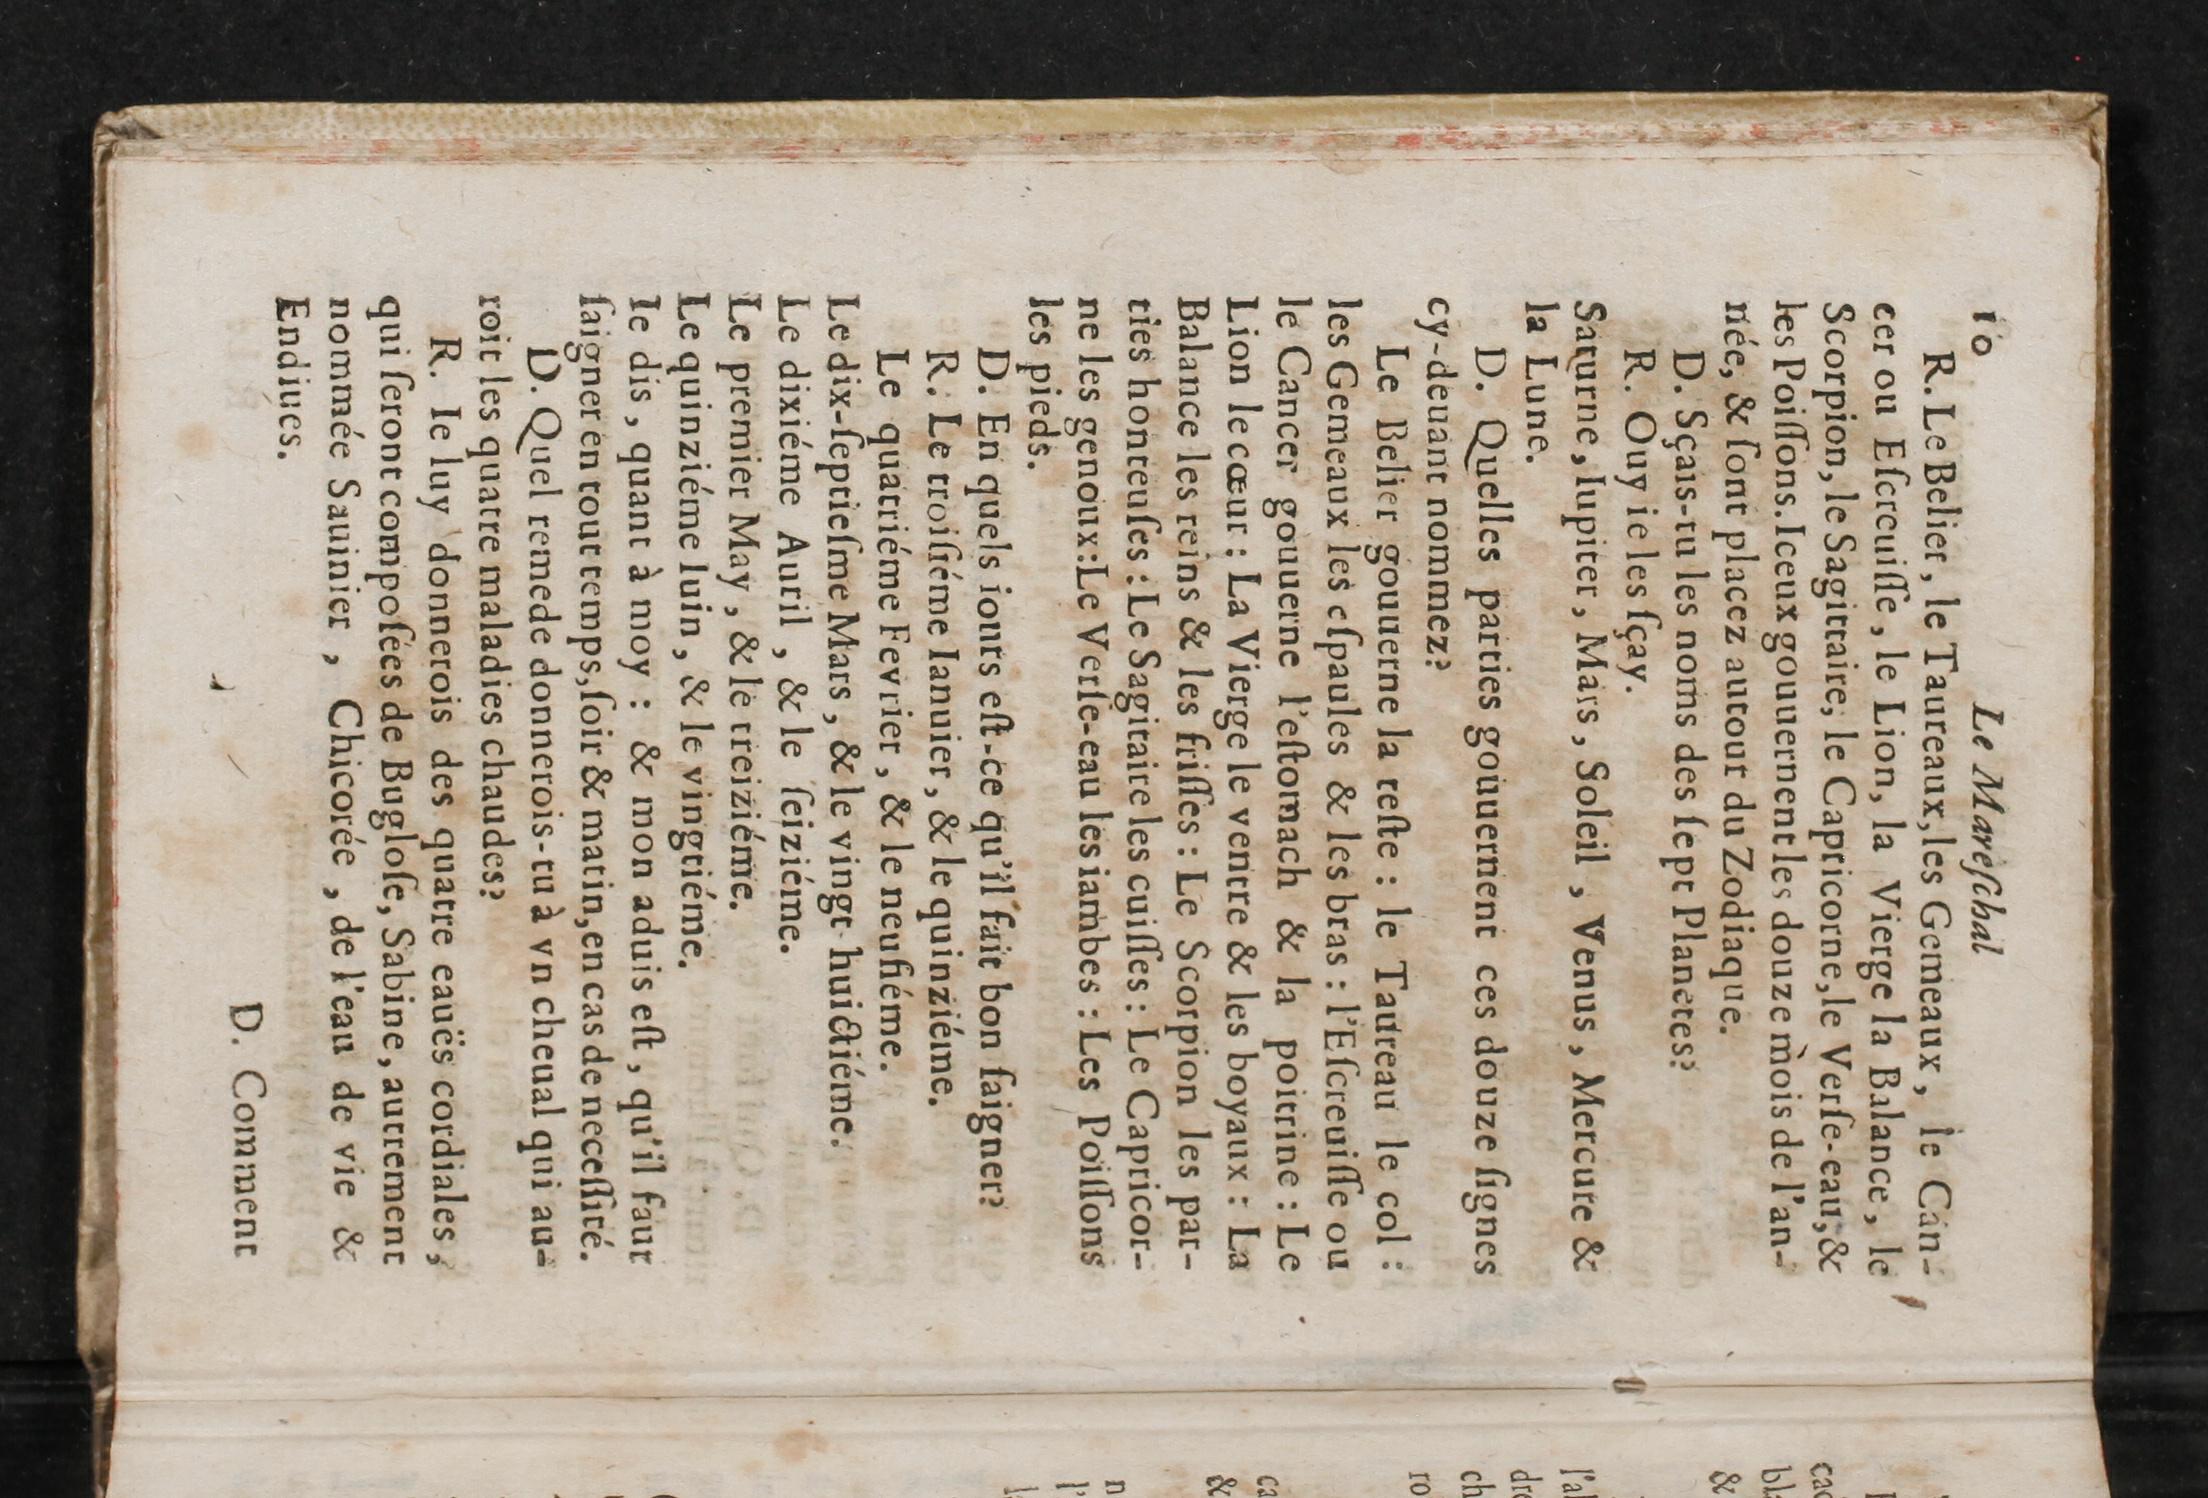 10 Le Mareſchal
R. Le Belier, le Taureaux, les Gemeaux, le Can-
cer ou Eſcreuiſſe, le Lion, la Vierge la Balance, le
Scorpion, le Sagittaire, le Capricorne, le Verſe-eau, &
les Poiſſons. Iceux gouuernent les douze mois de l'an-
née, & ſont placez autour du Zodiaque.
D. Sçais-tu les noms des ſept Planetes?
R. Ouy ie les ſçay.
Saturne, Iupiter, Mars, Soleil, Venus, Mercure &
la Lune.
D. Quelles parties gouuernent ces douze ſignes
cy-deuant nommez?
Le Belier gouuerne la teſte : le Taureau le col :
les Gemeaux les eſpaules & les bras : l'Eſcreuiſſe ou
le Cancer gouuerne l'eſtomach & la poitrine : Le
Lion le cœur : La Vierge le ventre & les boyaux : La
Balance les reins & les friſſes : Le Scorpion les par-
ties honteuſes : Le Sagitaire les cuiſſes : Le Capricor-
ne les genoux : Le Verſe-eau les iambes : Les Poiſſons
les pieds.
D. En quels iours eſt-ce qu'il fait bon ſaigner?
R. Le troiſiéme Ianuier, & le quinziéme.
Le quatriéme Fevrier, & le neufiéme.
Le dix-ſeptieſme Mars, & le vingt huictiéme.
Le dixiéme Auril, & le ſeiziéme.
Le premier May, & le treiziéme.
Le quinziéme Iuin, & le vingtiéme.
Ie dis, quant à moy : & mon aduis eſt, qu'il faut
ſaigner en tout temps, ſoir & matin, en cas de neceſſité.
D. Quel remede donnerois-tu à vn cheual qui au-
roit les quatre maladies chaudes?
R. Ie luy donnerois des quatre eauës cordiales,
qui ſeront compoſées de Bugloſe, Sabine, autrement
nommée Sauinier, Chicorée, de l'eau de vie &
Endiues.
D. Comment